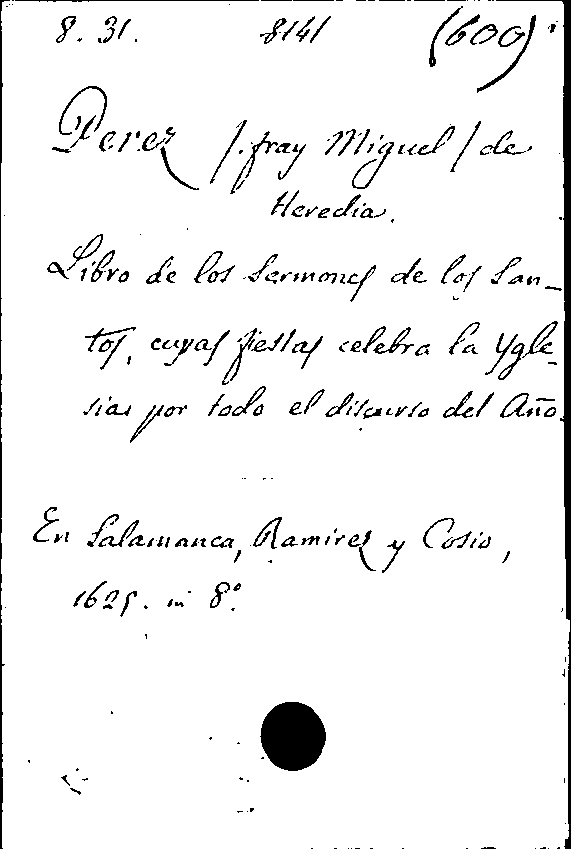 8. 31. 8141 (600)
Perez /. fray Miguel / de
Heredia.
Libro de los Sermones de los San-
tos, cuyas fiestas celebra la Ygle-
sias por todo el discurso del Año.
En Salamanca, Ramirez y Cosio,
1625. in 8°.